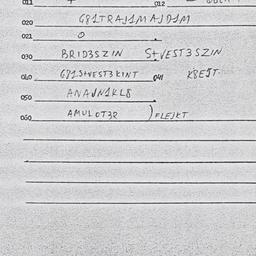 011 012
020 G81TRAJ1MAJD1M
021 0
030 BRID3SZIN S+VEST3SZIN
040 G81S+VEST3KINT 041 K8EJT
050 ANAVN1KL8
060 AMULOT32 )FLEJKT